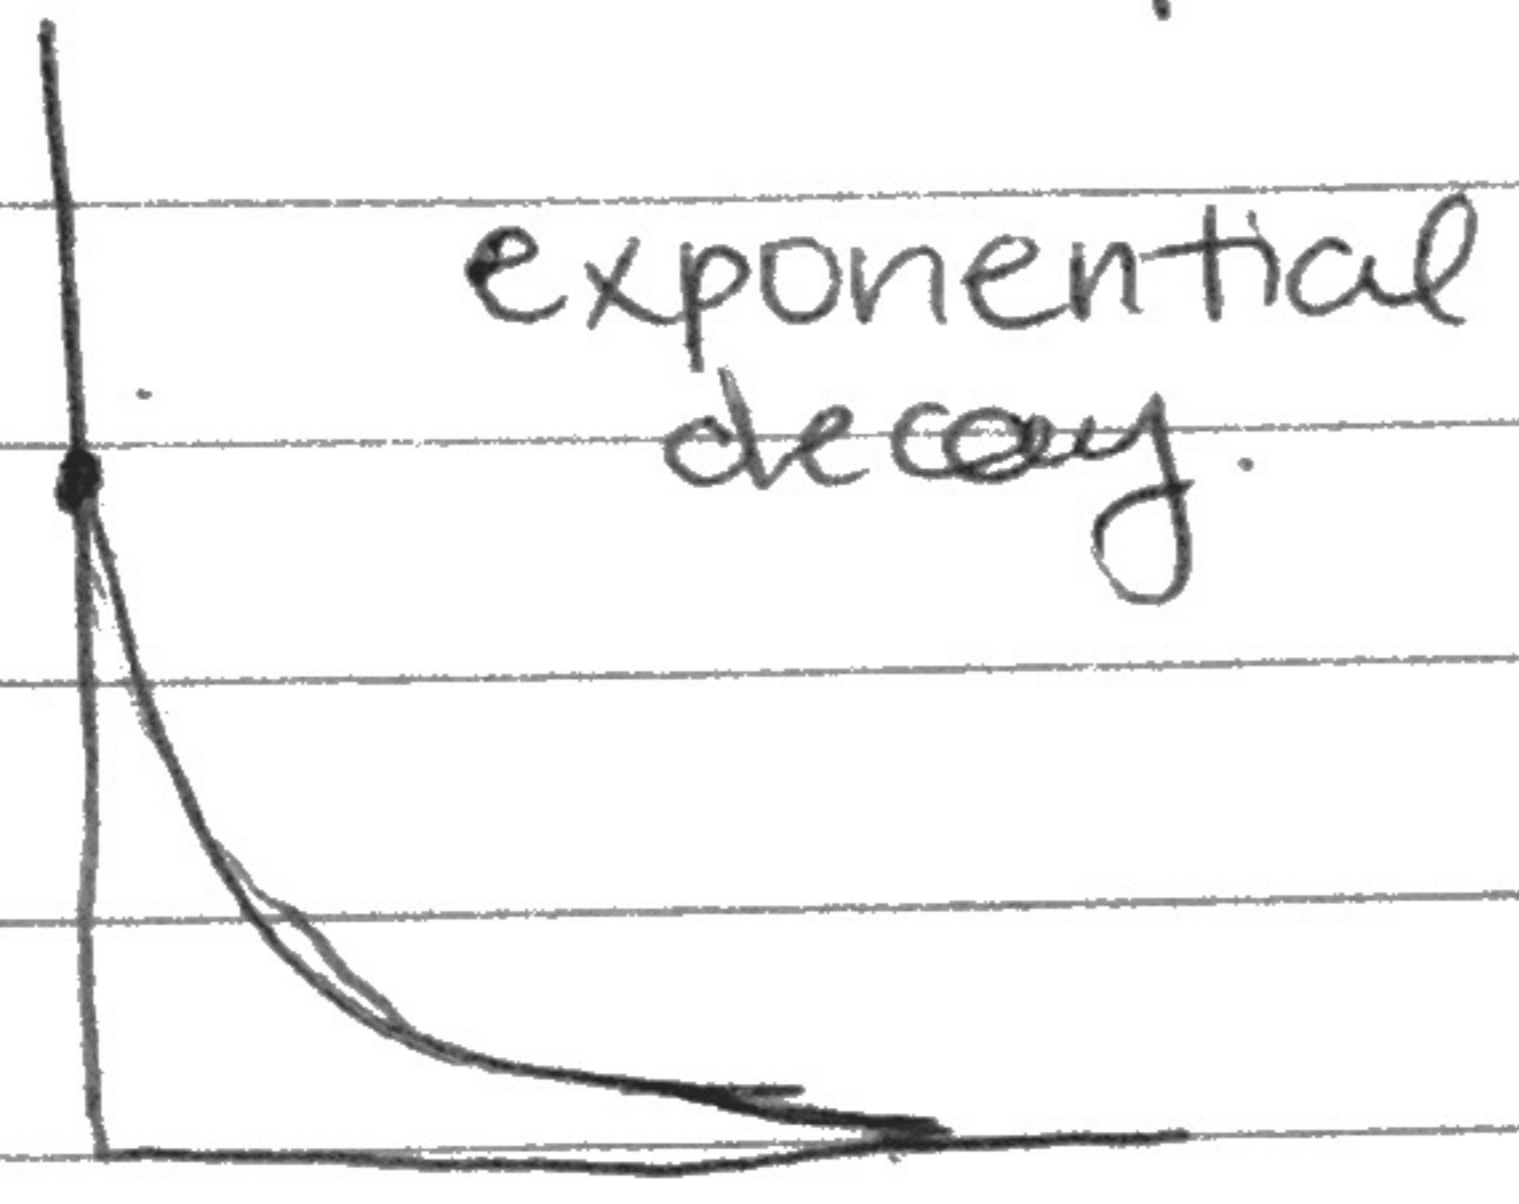 exponential
decay.